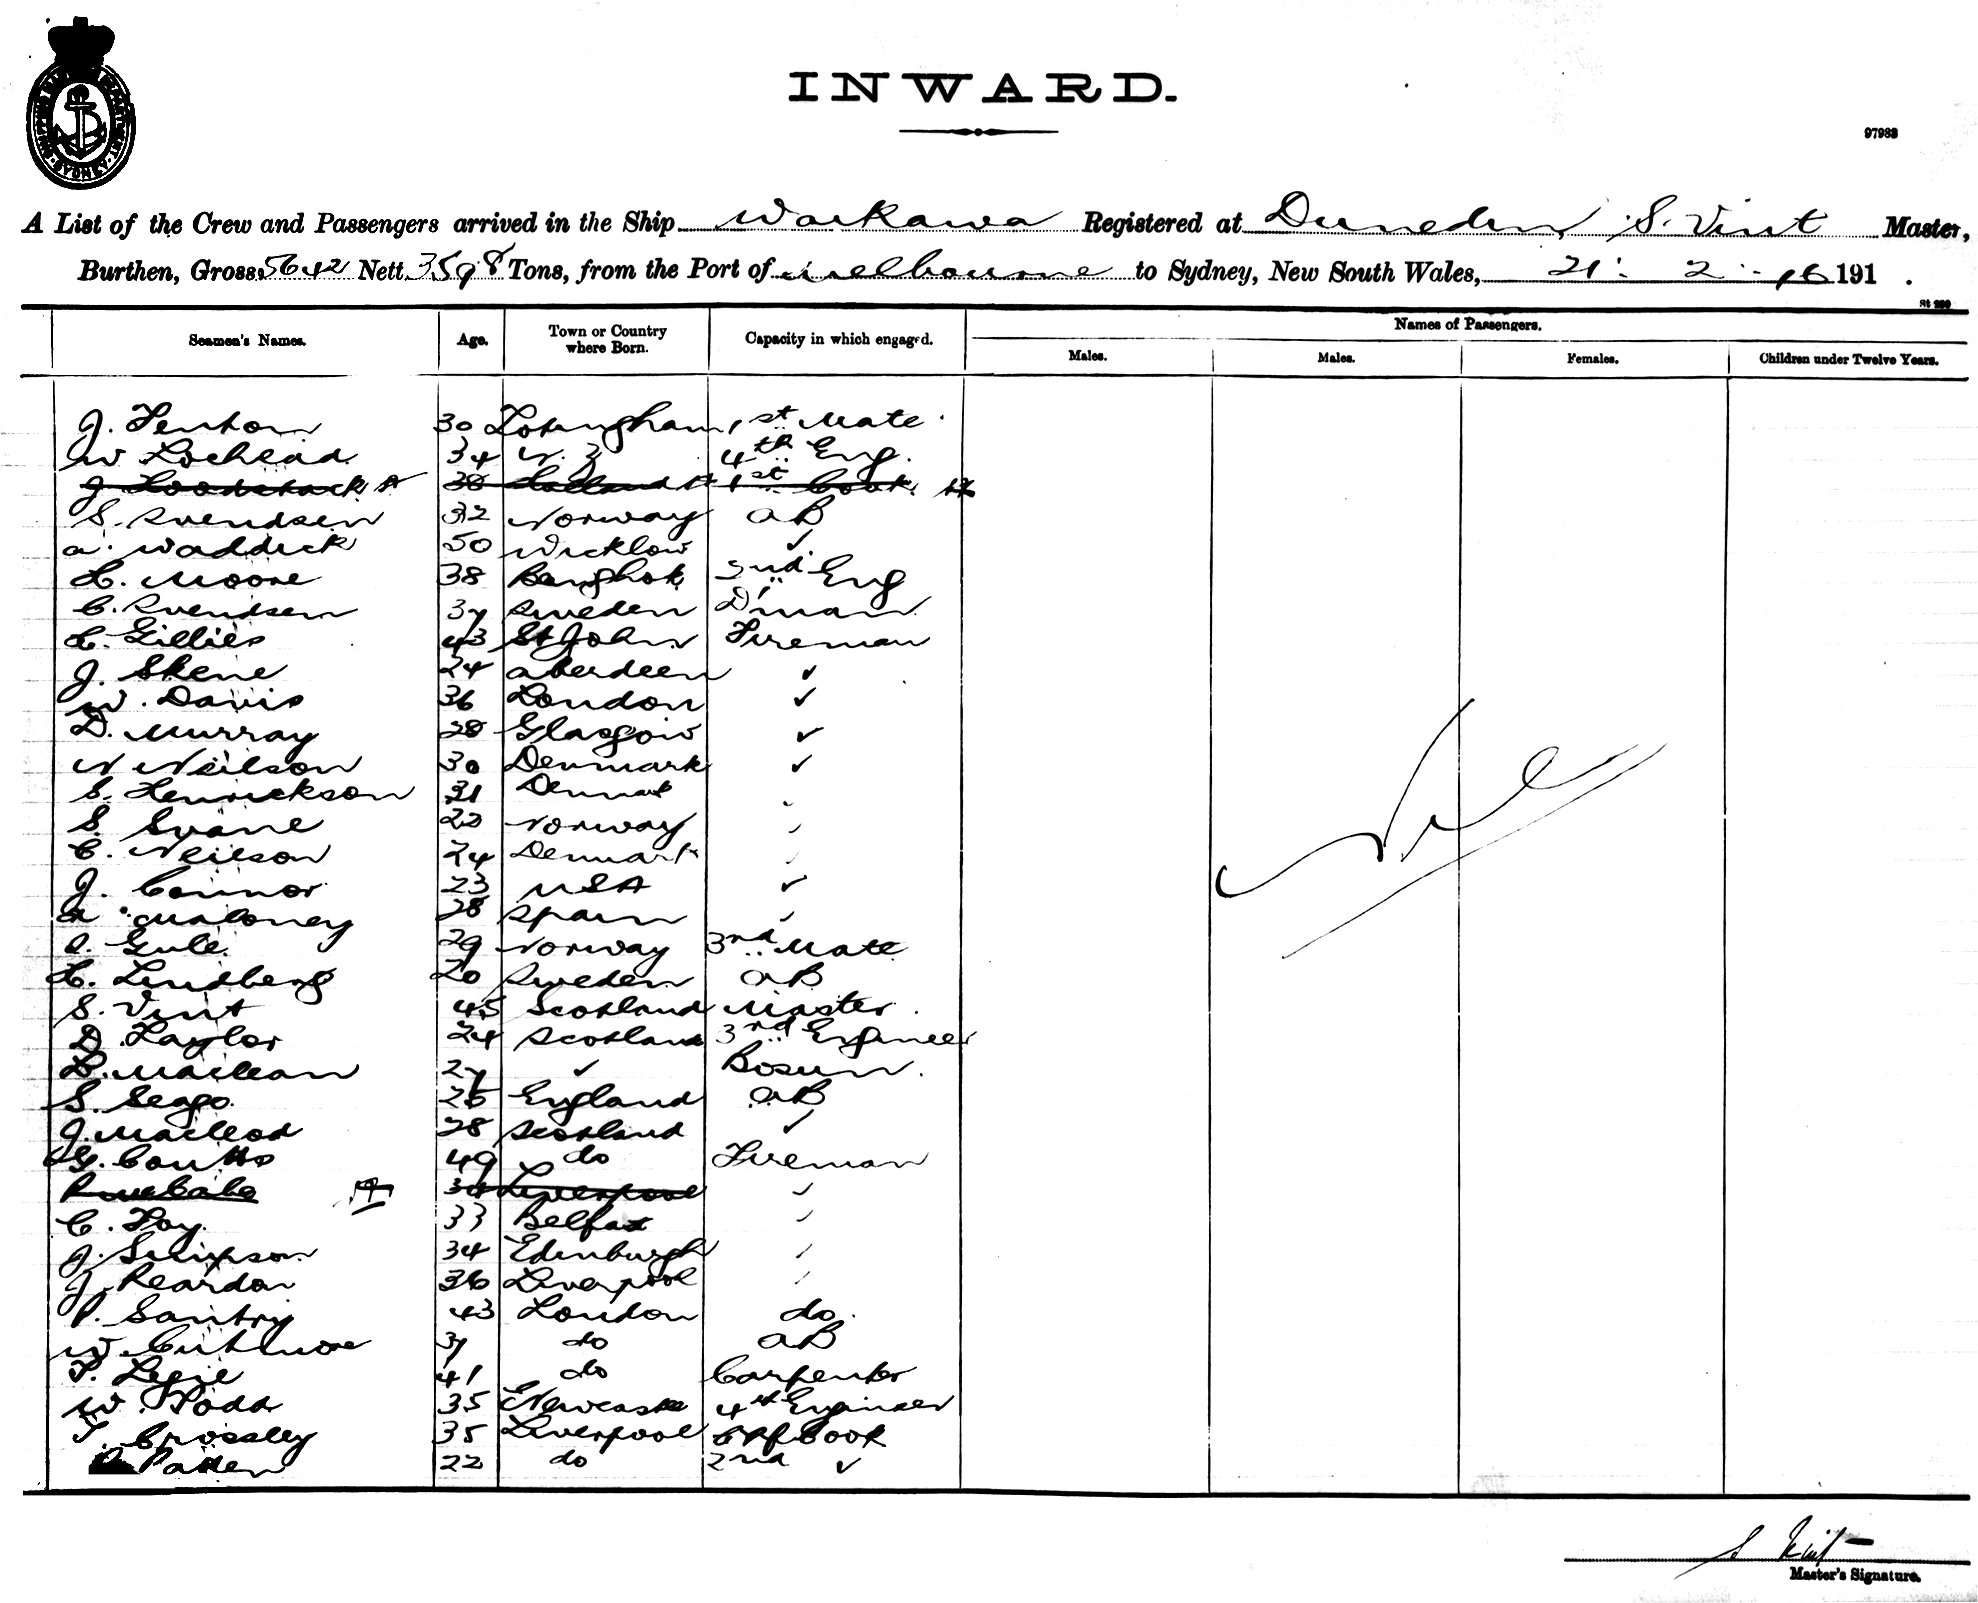 SHIPPING MASTER'S DEPARTMENT. SYDNEY.
INWARD.
97983
A List of the Crew and Passengers arrived in the Ship Waikawa Registered at Dunedin, S. Vint Master,
Burthen, Gross 5642 Nett 3598 Tons, from the Port of Melbourne to Sydney, New South Wales, 21: 2 - 16 191 .
St 290
Seamen's Names. Age. Town or Country where Born. Capacity in which engaged. Names of Passengers.
Males. Males. Females. Children under Twelve Years.
J. Fenton 30 1st Mate
W Lochead 34 N.Z 4th Eng.
J. 38 1st Cook
S. Svendsen 32 Norway AB
A. Waddick 50 Wicklow ✓
H. Moore 38 Bangkok 2nd Eng
C. Svendsen 37 Sweden D'man
C. Gillies 43 St John Fireman
J. Skene 24 Aberdeen ✓
W. Davis 36 London ✓
D. Murray 28 Glasgow ✓
N Neilson 30 Denmark ✓
S. Henrickson 31 Denmark ✓
S. Svane 22 Norway ✓
C. Neilson 24 Denmark ✓
J. Connor 23 USA ✓
A. Maloney 28 Spain ✓
O. Gule 29 Norway 3rd Mate
H. Lindberg 20 Sweden AB
S. Vint 45 Scotland Master
D. Taylor 24 Scotland 3rd Engineer
D. Maclean 27 ✓ Bosun.
S. Seago. 25 England AB
J. Macleod 28 Scotland ✓
G. Coutts 49 do Fireman
34 Liverpool ✓
C. Foy. 33 Belfast ✓
J. Simpson 34 Edinburgh ✓
J. Reardon 36 Liverpool ✓
P. Santry 43 London do.
W. Cuthmore 37 do AB
T. 41 do Carpenter
W. Todd 35 Newcastle 4th Engineer
T. Crossley 35 Liverpool Cook
Patten 22 do 2nd ✓
Nil
S Vint
Master's Signature.